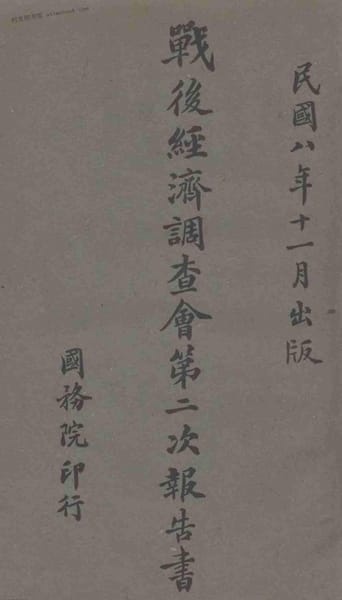 民國八年十一月出版
戰後經濟調查會第二次報告書
國務院印行